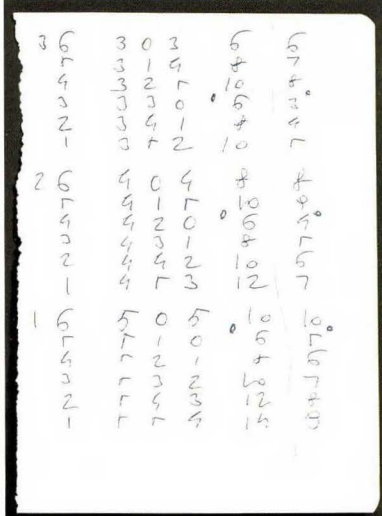 3 6 3 0 3 6 6
5 3 1 4 8 7
4 3 2 5 10 8
3 3 3 0 • 6 3 •
2 3 4 1 8 4
1 3 5 2 10 5
2 6 4 0 4 8 8
5 4 1 5 10 9
4 4 2 0 • 6 4 •
3 4 3 1 8 5
2 4 4 2 10 6
1 4 5 3 12 7
1 6 5 0 5 10 10
5 5 1 0 • 6 5 •
4 5 2 1 8 6
3 5 3 2 10 7
2 5 4 3 12 8
1 5 5 4 14 9